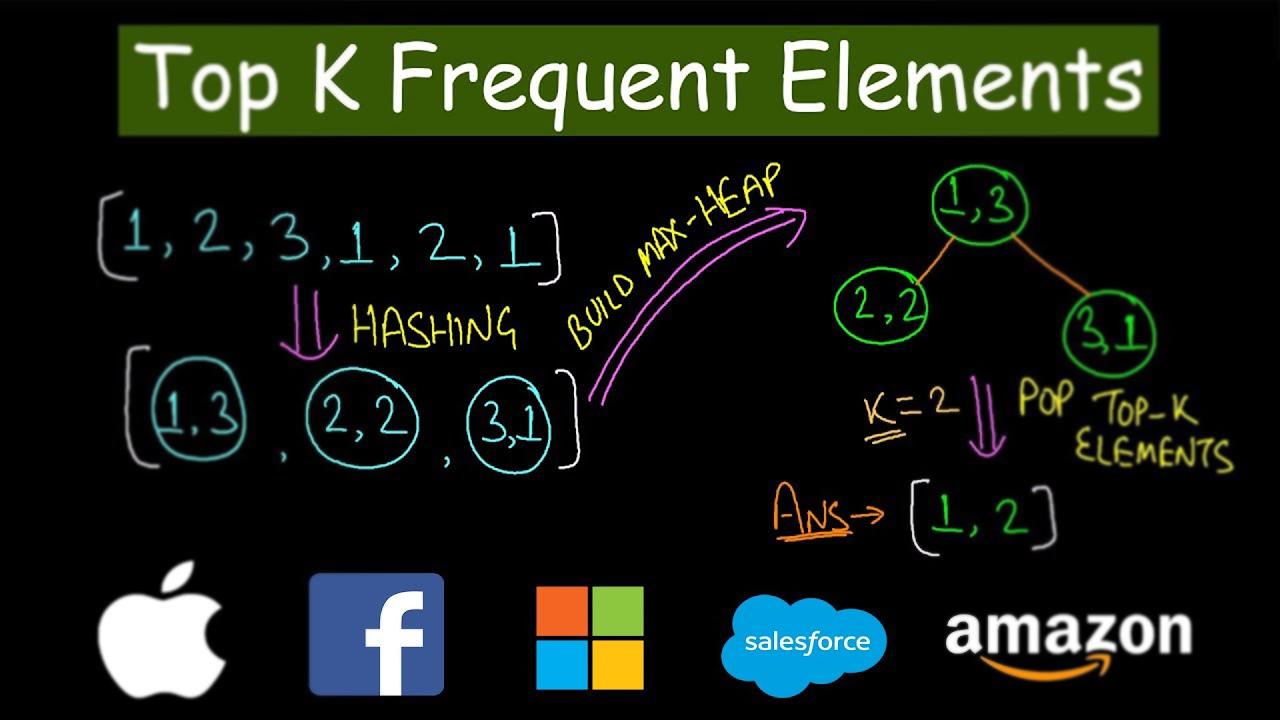 Top K Frequent Elements
[1, 2, 3, 1, 2, 1]
HASHING
[1,3 , 2,2 , 3,1]
BUILD MAX-HEAP
1,3
2,2
3,1
K=2
POP TOP-K
ELEMENTS
ANS→ [1, 2]
f
salesforce
amazon